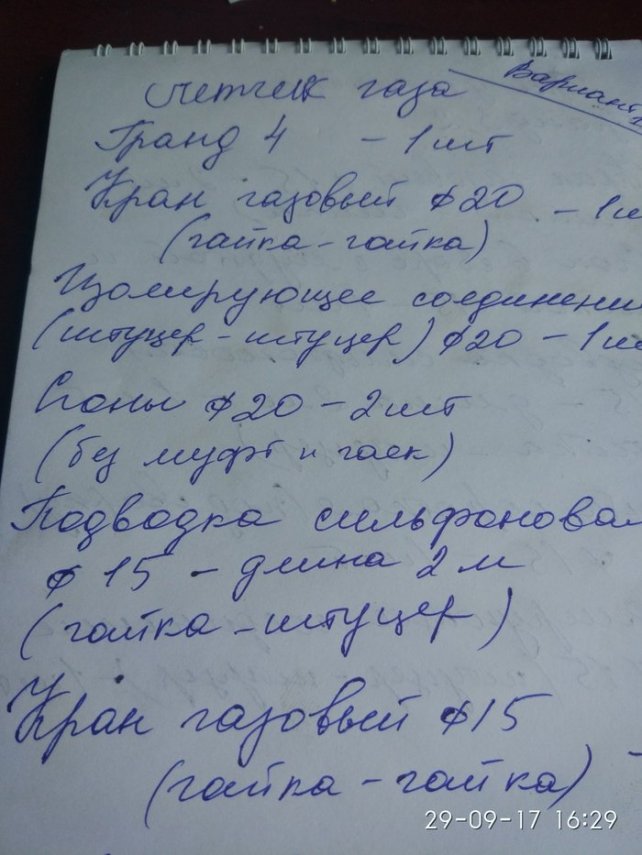 Вариант
Счетчик газа
Гранд 4 - 1 шт
Кран газовый ф20 - 1
(гайка - гайка)
Изолирующее соединени
(штуцер - штуцер) ф20 - 1 ш
Сгоны ф20 - 2 шт
(без муфт и гаек)
Подводка сильфоновая
ф 15 - длина 2 м
(гайка - штуцер)
Кран газовый ф15
(гайка - гайка)
29-09-17 16:29